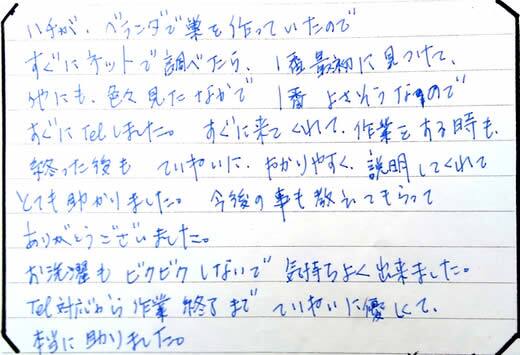 ハチが、ベランダで巣を作っていたので
すぐにネットで調べたら、1番最初に見つけて、
他にも、色々見たなかで 1番 よさそうなので
すぐにTelしました。すぐに来てくれて、作業をする時も、
終った後も ていねいに、わかりやすく、説明してくれて
とても助かりました。 今後の事も教えてもらって
ありがとうございました。
お洗濯もビクビクしないで 気持ちよく出来ました。
Tel対応から 作業 終了まで ていねいに優しくて、
本当に助りました。